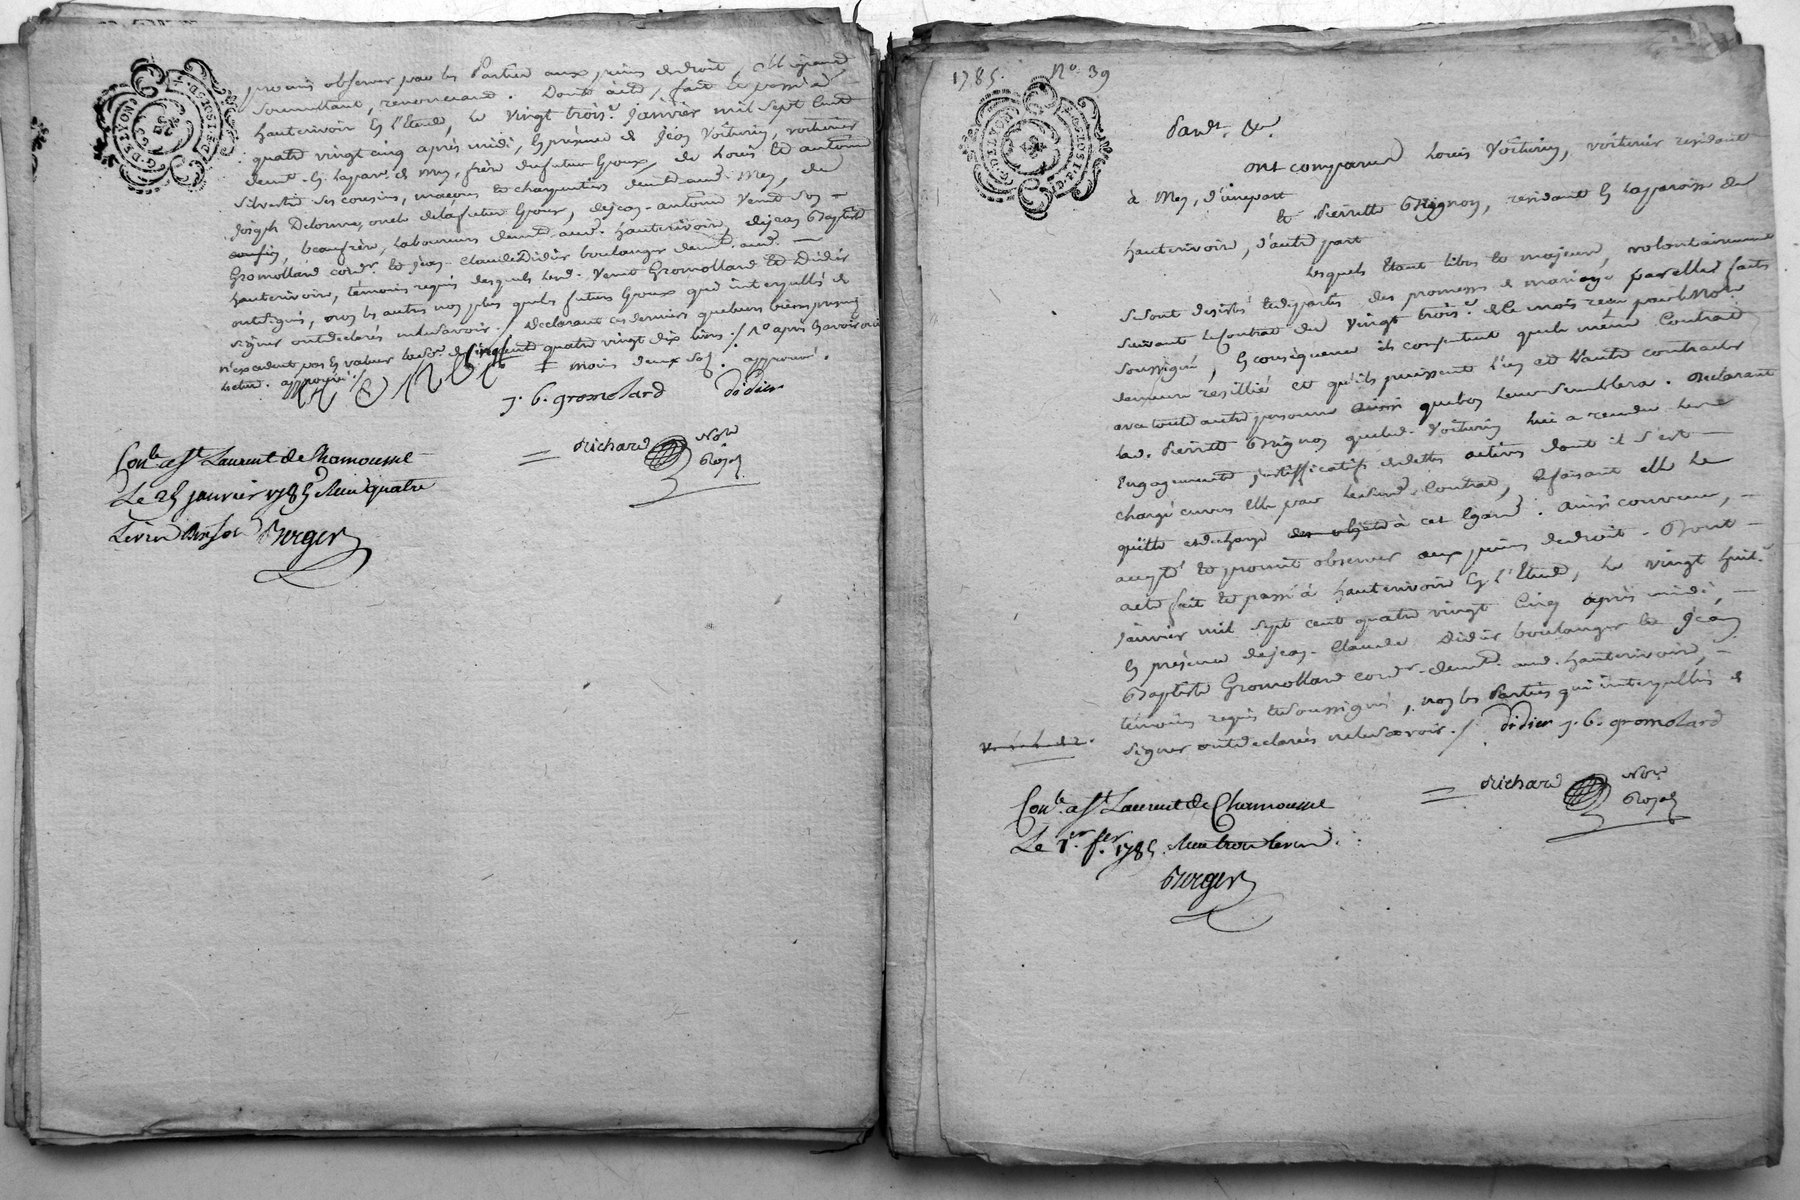 promis observer par les Parties aux peines de droit, obligeant
soumettant, renonceant. Dont acte, fait et passé à
hauterivoir en l'Etude, le vingt trois.e janvier mil sept cent
quatre vingt cinq après midi, en présence de jean Voiturin, voiturier
demt. en laparr. de Mey, frère du futur Epoux, de Louis et antoine
silvestre ses cousins, maçons et charpentiers demt. aud. Mey, de
joseph Delorme, oncle de la future Epouse, de jean-antoine Venet son
cousin, beaufrère, laboureurs demt. aud. hauterivoir, de jean Baptiste
Gromollard cordr. et jean-Claude Didier boulanger demt. aud.
hauterivoir, témoins requis desquels lesd. Venet Gromollard et Didier
ont signé, non les autres non plus que les futurs Epoux qui interpellés de
signer ont déclarés ne le savoir. / Déclarant ces derniers que leurs biens présens
n'excedent pas en valeur la so.e de cinq cent quatre vingt dix livres / après
lecture. approuvé / moins deux so. approuvé.
j. b. gromolard didier
Richard Nore Royal
Conlé a St Laurent de Chamousse
Le 25 janvier 1785 Reçu quatre
Berger
1785. No. 39
Pardt. &a.
ont comparu Louis Voiturin, voiturier residant
à Mey, d'une part
et Pierrette Brignon, residant en la parroisse de
hauterivoir, d'autre part
Lesquels étant libres et majeurs, volontairement
se sont desistés et departis des promesses de mariage par elles faites
suivant le contrat du vingt trois.e de ce mois recu par le Nore
soussigné, en conséquence ils consentent que le même Contrat
demeure resillié et qu'ils puissent l'un et l'autre contracter
avec toute autre personne ainsi que bon leur semblera. Déclarant
lad. Pierrette Brignon que led. Voiturin lui a rendu les
Engagements justifficatifs de dettes actives dont il s'est
chargé envers elle par le susd. Contrat, le faisant elle le
quitte et decharge des objets à cet Egard. Ainsi convenu,
accepté et promis observer aux peines de droit. Dont
acte fait et passé à hauterivoir en l'Etude, le vingt huit.e
janvier mil sept cent quatre vingt Cinq après midi,
en présence de jean-Claude Didier boulanger et jean
Baptiste Gromollard cordr. demt. aud. hauterivoir,
témoins requis et soussignés, non les Parties qui interpellées de
signer ont declarées ne le savoir. / didier j. b. gromolard
Richard Nore Royal
Conlé a St Laurent de Chamousse
Le 1er fer 1785. Reçu
Berger